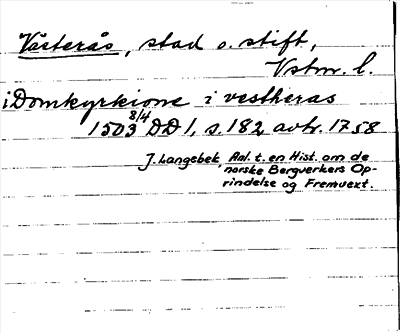 Västerås, stad o. stift,
Vstm. l.
i Domkyrkione i vestheras
1503 8/4 DD 1, s. 182 avtr. 1758
J. Langebek, Anl. t. en Hist. om de
norske Bergverkers Op-
rindelse og Fremvext.